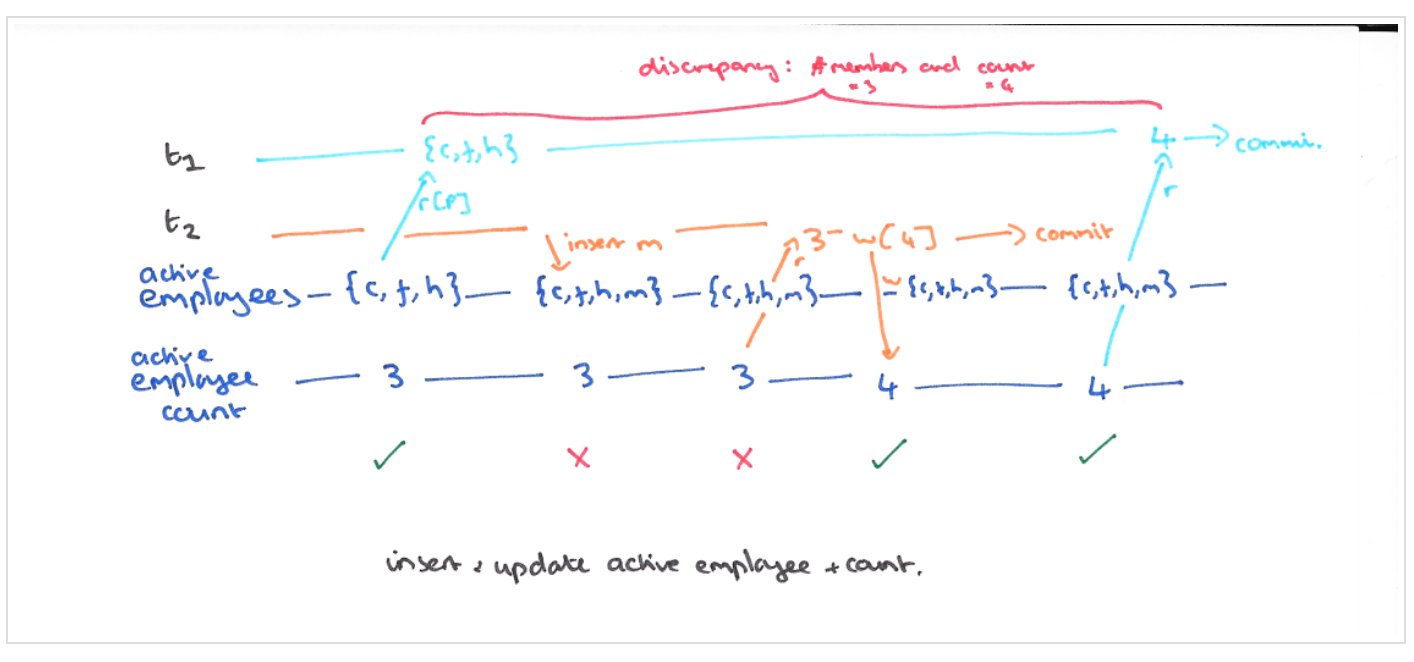 discrepancy: # members and count
= 3 = 4
t1 {c,t,h} 4 commi.
r[P] r
t2 insert m r 3 w[4] commit
active
employees {c,t,h} {c,t,h,m} {c,t,h,m} {c,t,h,m} {c,t,h,m}
active
employee 3 3 3 4 4
count
✓ ✗ ✗ ✓ ✓
insert : update active employee + count.